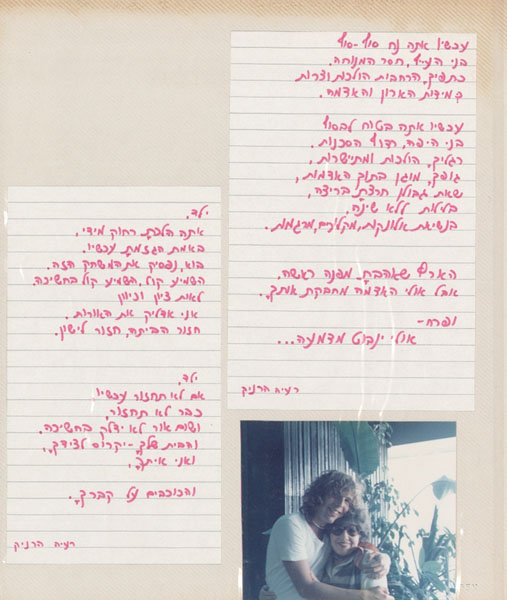 עכשיו אתה נח סוף-סוף
בני העייף, חסר המנוחה.
כתפיך הרחבות הולכות וצרות
במידות הארון והאדמה.
עכשיו אתה בטוח לבסוף
בני היפה, רדוף הסכנות.
רגליך, הולכות ומתישרות,
גופך, מוגן בתוך האדמות,
שאת גבולן חרצת בריצה,
בלילות ללא שינה.
בנשיאת אלונקות, מקלעים, מרגמות.
הארץ שאהבת מפנה ראשה.
אבל אולי האדמה מחבקת אותך,
ופרח-
אולי ינבוט מדמעה...
רעיה הרניק
ילד,
אתה הלכת רחוק מידי,
באמת הגזמת עכשיו.
בוא, נפסיק את המשחק הזה.
השמיע קול, השמיע קול בחשיכה.
לאות ציון וכיוון
אני אדליק את האורות.
חזור הביתה, חזור לישון.
ילד,
אם לא תחזור עכשיו
כבר לא תחזור,
ושום אור לא ידלק בחשיכה.
והבית שלך - יקרוס לצידך,
ואני איתך,
והכוכבים על קברך.
רעיה הרניק